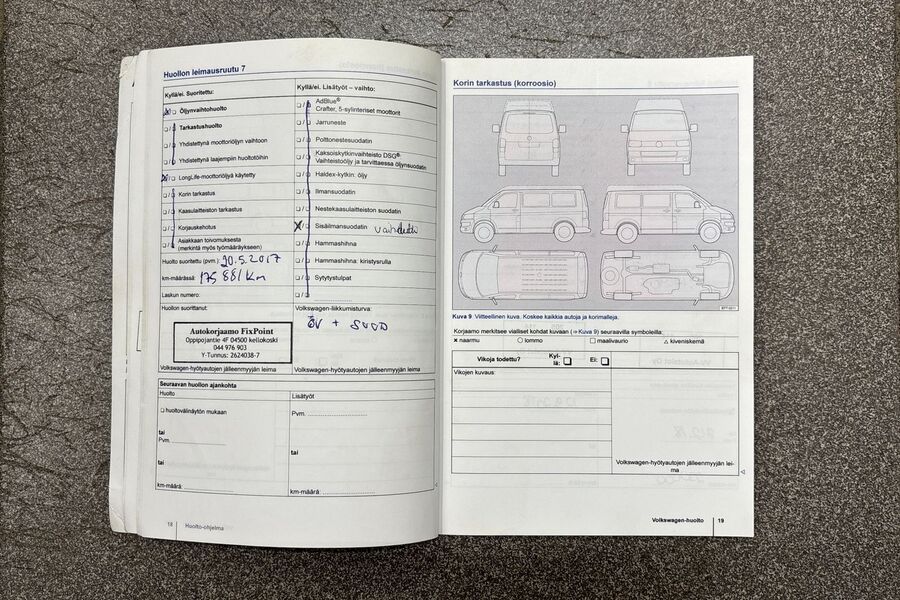 Huollon leimausruutu 7
Kyllä/ei. Suoritettu:
☒/☐ Öljynvaihtohuolto
☐/☐ Tarkastushuolto
☐/☐ Yhdistettynä moottoriöljyn vaihtoon
☐/☐ Yhdistettynä laajempiin huoltotöihin
☒/☐ LongLife-moottoriöljyä käytetty
☐/☐ Korin tarkastus
☐/☐ Kaasulaitteiston tarkastus
☐/☐ Korjauskehotus
☐/☐ Asiakkaan toivomuksesta
(merkintä myös työmääräykseen)
Huolto suoritettu (pvm.) 20.5.2017
km-määrässä: 175 881 km
Laskun numero:
Huollon suorittanut:
Autokorjaamo FixPoint
Oppipojantie 4F 04500 kellokoski
044 976 903
Y-Tunnus: 2624038-7
Volkswagen-hyötyautojen jälleenmyyjän leima
Kyllä/ei. Lisätyöt – vaihto:
☐/☐ AdBlue®
Crafter, 5-sylinteriset moottorit
☐/☐ Jarruneste
☐/☐ Polttonestesuodatin
☐/☐ Kaksoiskytkinvaihteisto DSG®:
Vaihteistoöljy ja tarvittaessa öljynsuodatin
☐/☐ Haldex-kytkin: öljy
☐/☐ Ilmansuodatin
☐/☐ Nestekaasulaitteiston suodatin
☒/☐ Sisäilmansuodatin vaihdettu
☐/☐ Hammashihna
☐/☐ Hammashihna: kiristysrulla
☐/☐ Sytytystulpat
☐/☐
Volkswagen-liikkumisturva:
ÖV + SUOD
Volkswagen-hyötyautojen jälleenmyyjän leima
Seuraavan huollon ajankohta
Huolto
☐ huoltovälinäytön mukaan
tai
Pvm.
tai
km-määrä:
Lisätyöt
Pvm.
tai
km-määrä:
18 Huolto-ohjelma
Korin tarkastus (korroosio)
Kuva 9 Viitteellinen kuva. Koskee kaikkia autoja ja korimalleja.
Korjaamo merkitsee vialliset kohdat kuvaan (⇒ Kuva 9) seuraavilla symboleilla:
× naarmu ○ lommo □ maalivaurio △ kiveniskemä
Vikoja todettu? Kyl-
lä: ☐ Ei: ☐
Vikojen kuvaus:
Volkswagen-hyötyautojen jälleenmyyjän lei-
ma
Volkswagen-huolto 19